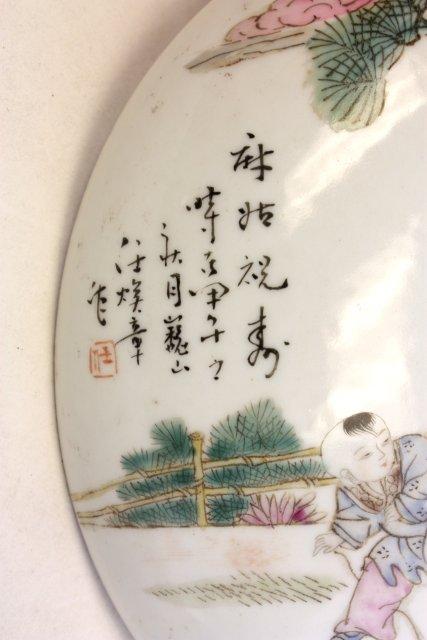 麻姑祝壽
時在甲午之
秋月巍山
任煥章
作
任